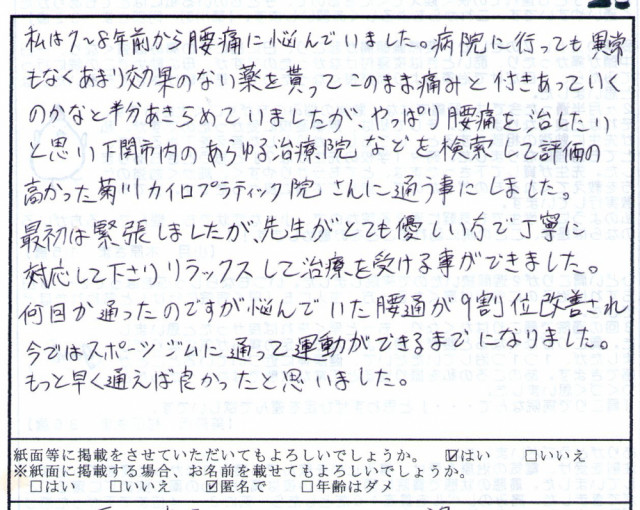 私は7~8年前から腰痛に悩んでいました。病院に行っても異常
もなくあまり効果のない薬を貰ってこのまま痛みと付きあっていく
のかなと半分あきらめていましたが、やっぱり腰痛を治したい
と思い下関市内のあらゆる治療院などを検索して評価の
高かった菊川カイロプラティック院さんに通う事にしました。
最初は緊張しましたが、先生がとても優しい方で丁寧に
対応して下さりリラックスして治療を受ける事ができました。
何回か通ったのですが悩んでいた腰通が9割位改善され
今ではスポーツジムに通って運動ができるまでになりました。
もっと早く通えば良かったと思いました。
紙面等に掲載をさせていただいてもよろしいでしょうか。 ☑はい □いいえ
※紙面に掲載する場合、お名前を載せてもよろしいでしょうか。
□はい □いいえ ☑匿名で □年齢はダメ